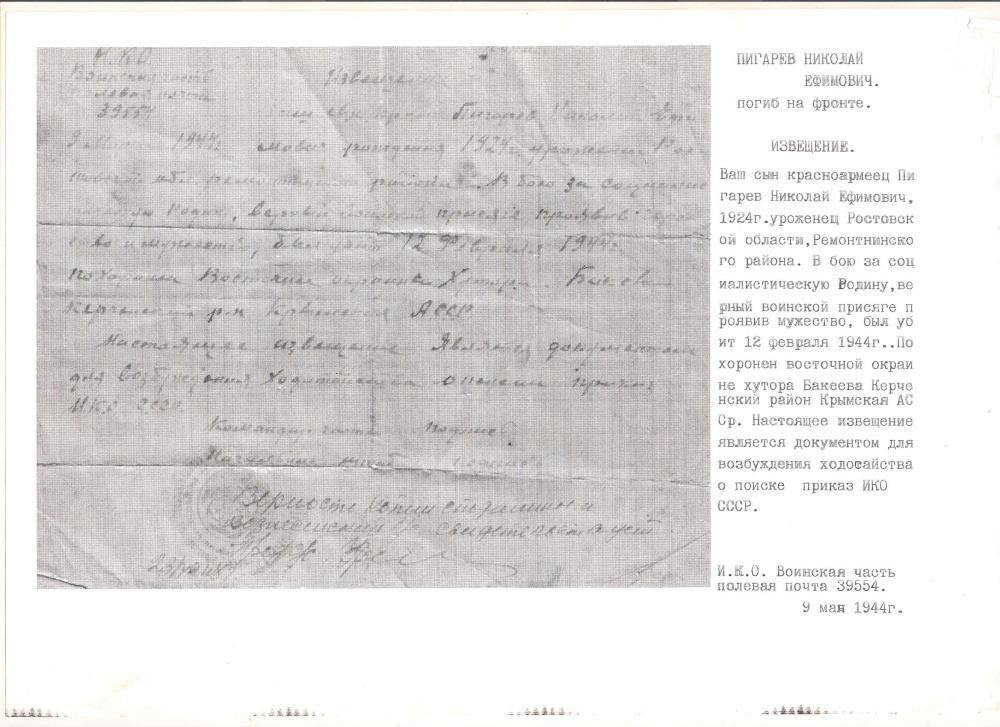 Н.К.О.
Воинская часть
полевая почта
39554
9 Мая 1944г.
Извещение
сын красн Пигарев Николай Ефи
мович рождения 1924г. уроженец Рос
товской обл. ремонтненского района. В бою за социалис
тическую Родину, верный воинской присяге проявив
и мужество, был убит 12 Февраля 1944г.
похоронен Восточные окраины Хутора
Керченский р-н Крымская АССР
Настоящее извещение Является документом
для Возбуждения Ходатайства о пенсии приказ
НКО СССР.
Командир части подпись
Начальник штаба подпись
Верность копии
свидетельствует
ПИГАРЕВ НИКОЛАЙ
ЕФИМОВИЧ.
погиб на фронте.
ИЗВЕЩЕНИЕ.
Ваш сын красноармеец Пи
гарев Николай Ефимович,
1924г.уроженец Ростовск
ой области,Ремонтнинско
го района. В бою за соц
иалистическую Родину,ве
рный воинской присяге п
роявив мужество, был уб
ит 12 февраля 1944г..По
хоронен восточной окраи
не хутора Бакеева Керче
нский район Крымская АС
Ср. Настоящее извещение
является документом для
возбуждения ходотайства
о поиске приказ ИКО
СССР.
И.К.О. Воинская часть
полевая почта 39554.
9 мая 1944г.